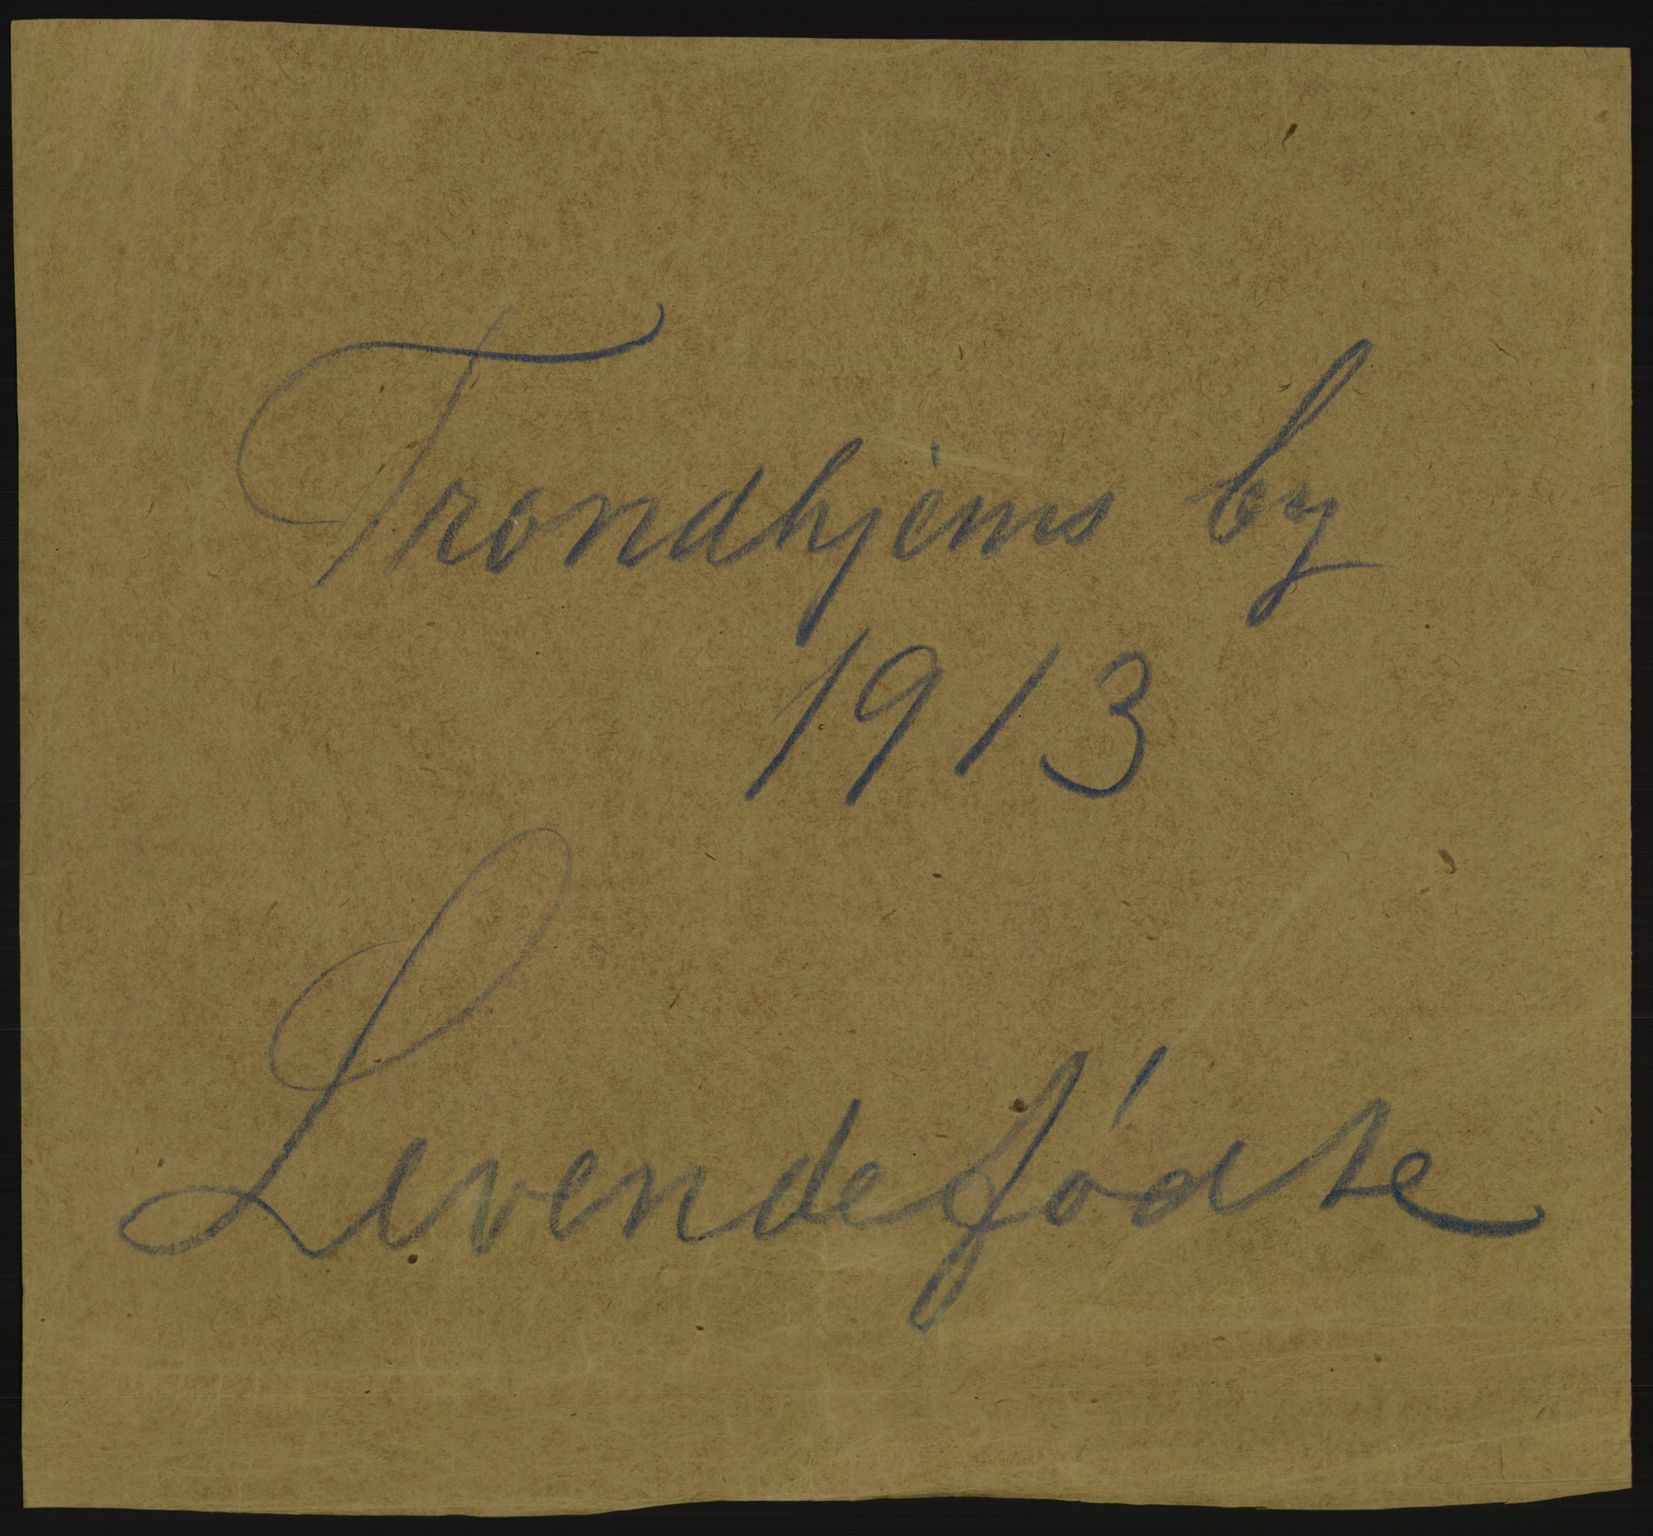 Trondhjems by
1913
Levendefødte